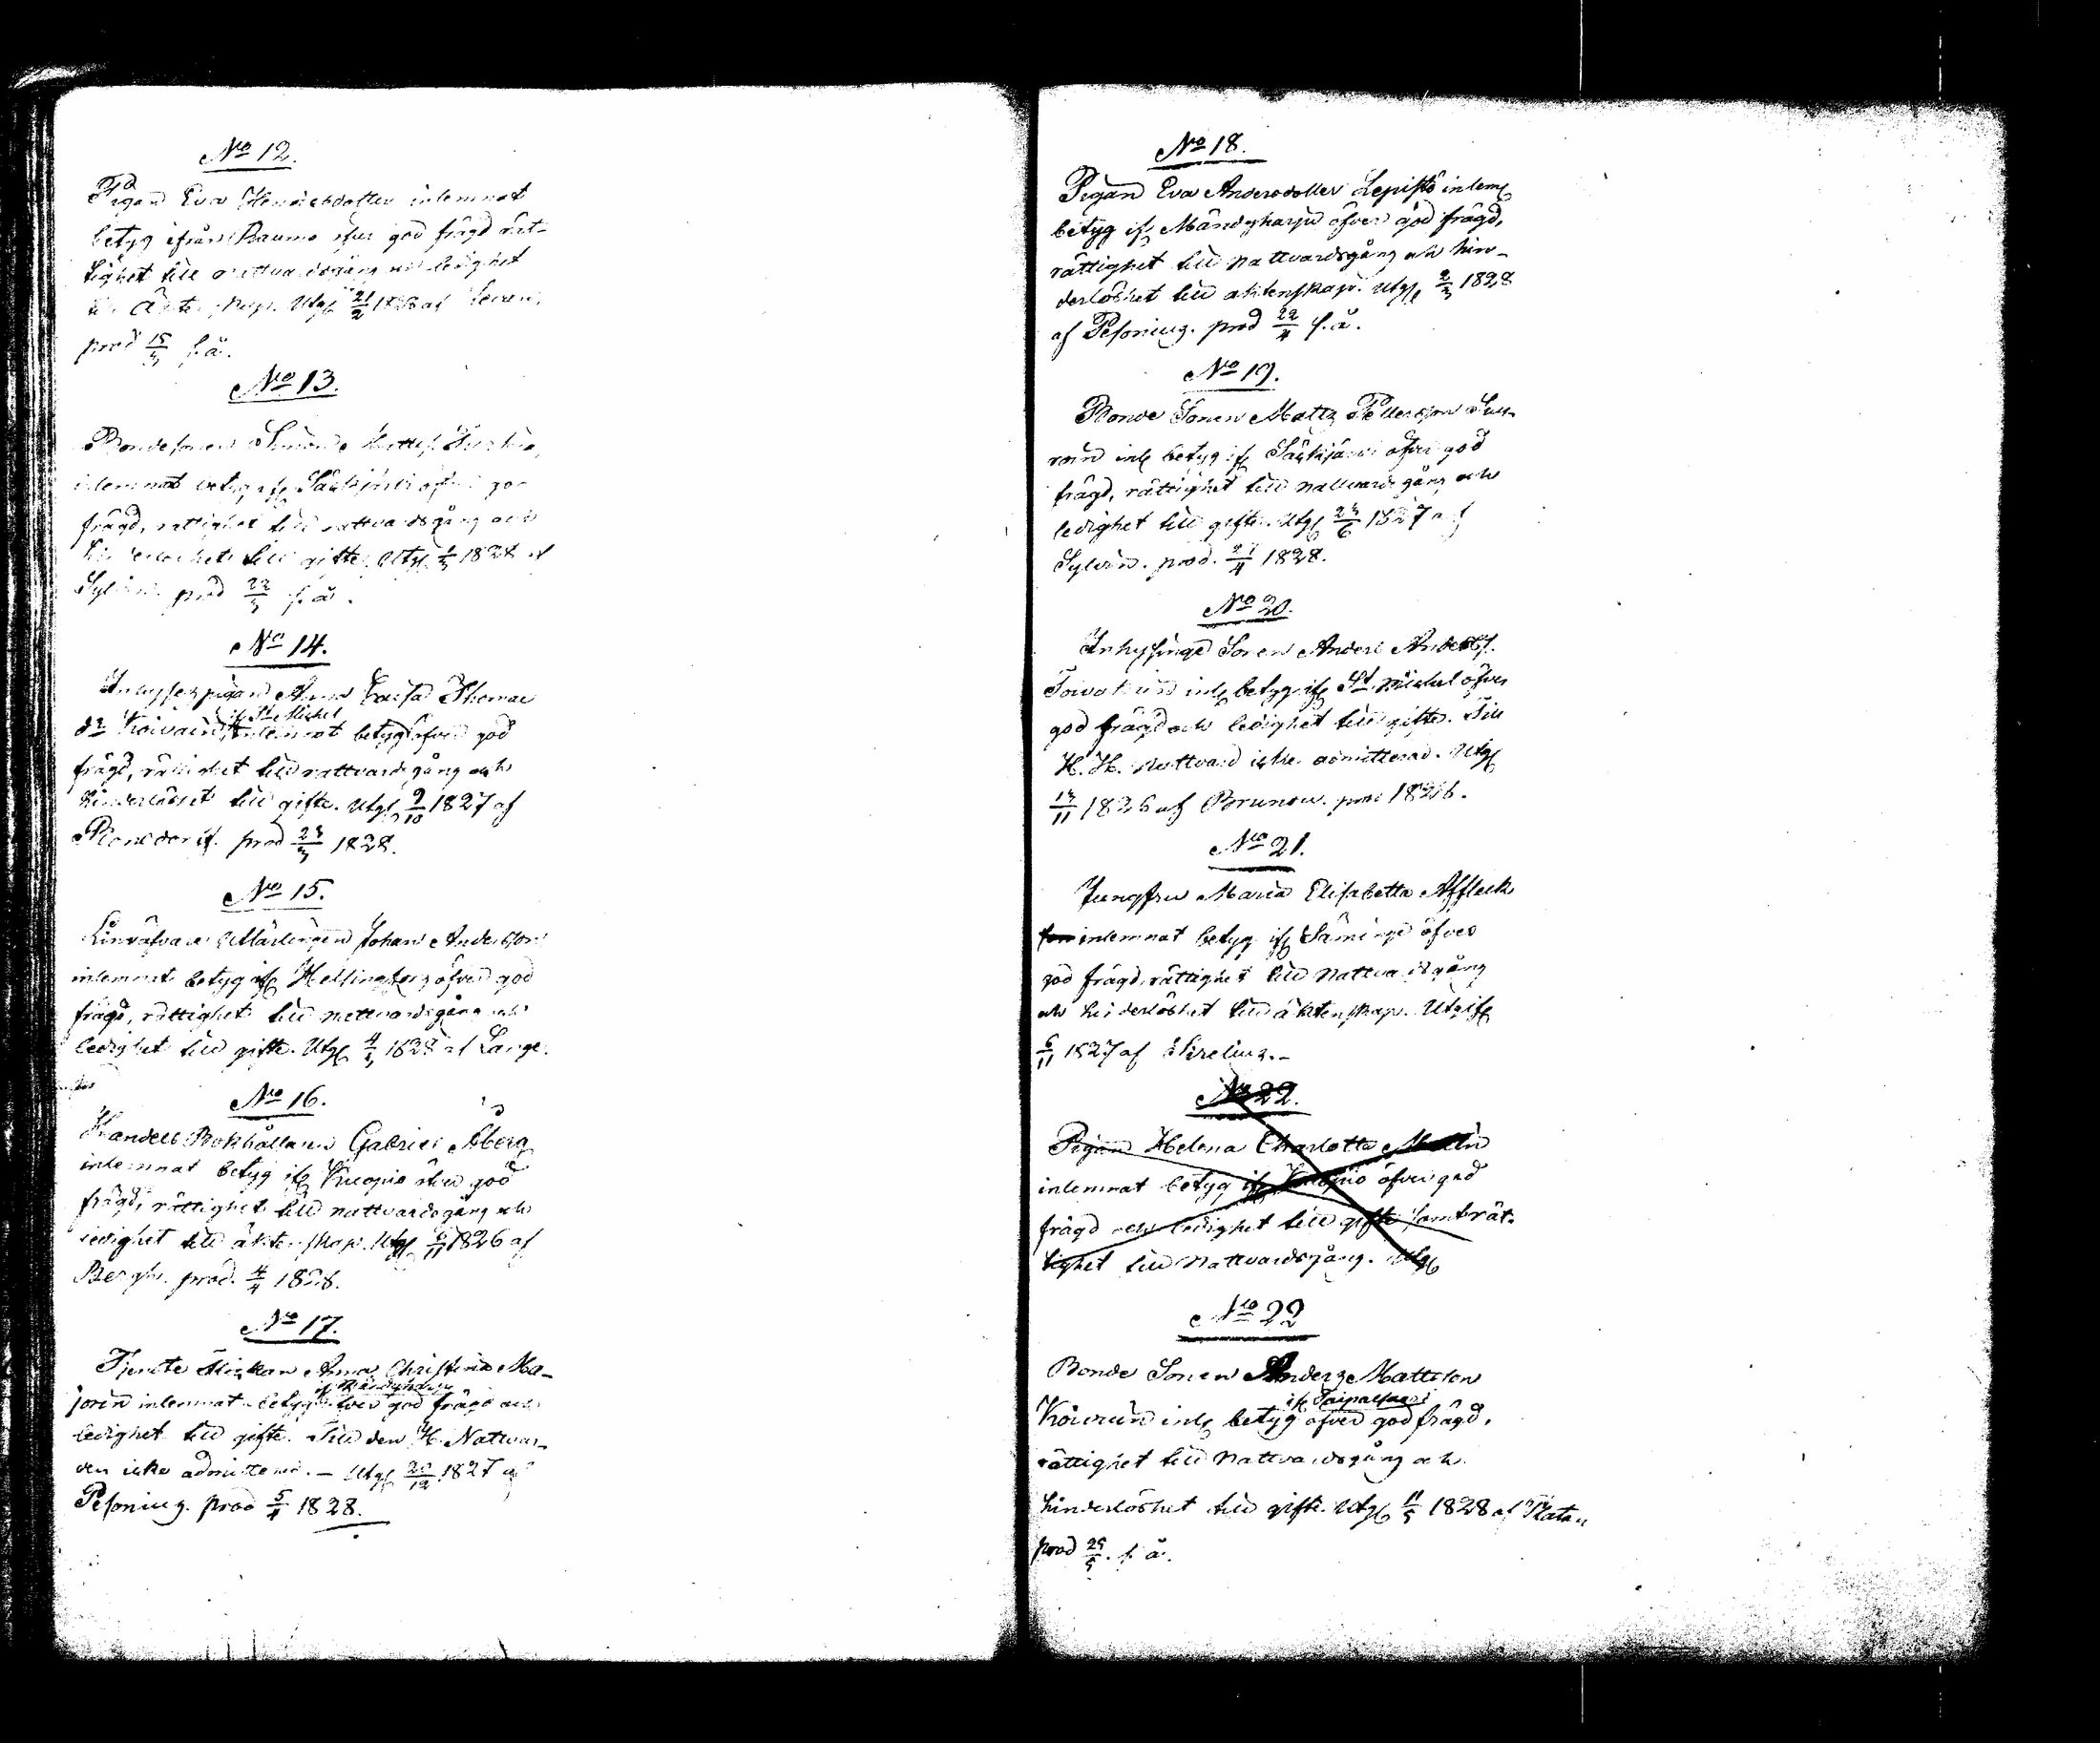 No 12.
Pigan Eva Henricsdotter inlemnat
betyg ifrån Raumo öfver god frägd rät-
tighet till nattvardsgång och ledighet
till Äktenskap. Utg 21/2 1828 af
prod 15/3 s. å.
No 13.
Bondesonen Simon Mattss.
inlemnat betyg if Säkkjärvi öfver god
frägd, rättighet till nattvardsgång och
hinderlöshet till gifte. Utg. 1/3 1828 af
Sylvin. prod 22/3 s. å.
No 14.
Inhyses pigan Anna Lovisa Thomae
dr Koivain, inlemnat betyg if St Michel öfver god
frägd, rättighet till nattvardsgång och
hinderlöshet till gifte. Utg 9/10 1827 af
Bonsdorff. prod 23/3 1828.
No 15.
Linväfvare Mästingen Johan Andersson
inlemnat betyg if Helsingfors öfver god
frägd, rättighet till nattvardsgång och
ledighet till gifte. Utg 4/3 1828 af Lange.
No 16.
Handels Bokhållaren Gabriel Åberg
inlemnat betyg if Kuopio öfver god
frägd, rättighet till nattvardsgång och
ledighet till äktenskap. Utg 6/11 1826 af
Bergh. prod. 4/4 1828.
No 17.
Tjenste flickan Anna Christina Ma-
join inlemnat betyg if Mändyharju öfver god frägd och
ledighet till gifte. Till den H. Nattvar-
den icke admitterad. – Utg 20/12 1827 af
Pesonius. prod 5/4 1828.
No 18.
Pigan Eva Andersdotter Lepistö inlem
betyg if Mändyharju öfver god frägd,
rättighet till nattvardsgång och hin-
derlöshet till äktenskap. Utg 2/3 1828
af Pesonius. prod 22/4 s. å.
No 19.
Bonde Sonen Matts Pettersson
inl betyg if Säkkjärvi öfver god
frägd, rättighet till nattvardsgång och
ledighet till gifte. Utg 24/6 1827 af
Sylvin. prod. 27/4 1828.
No 20.
Inhysinge Sonen Anders Anderss.
Toivakain inl betyg if St. Michel öfver
god frägd och ledighet till gifte. Till
H. H. Nattvard icke admitterad. Utg
13/11 1826 af Brunou. prod 1828.
No 21.
Jungfru Maria Elisabetta Affleck
inlemnat betyg if Säminge öfver
god frägd, rättighet till Nattvardsgång
och hinderlöshet till äktenskap. Utgif
6/11 1827 af Sirelius. –
No 22.
Pigan Helena Charlotta Malin
inlemnat betyg if Kuopio öfver god
frägd och ledighet till gifte samt rät-
tighet till Nattvardsgång. Utg
No 22
Bonde Sonen Anders Mattsson
Koivuin inl betyg if Taipalsari öfver god frägd,
rättighet till Nattvardsgång och
hinderlöshet till gifte. Utg 11/5 1828 af Platan
prod 25/5. s. å.